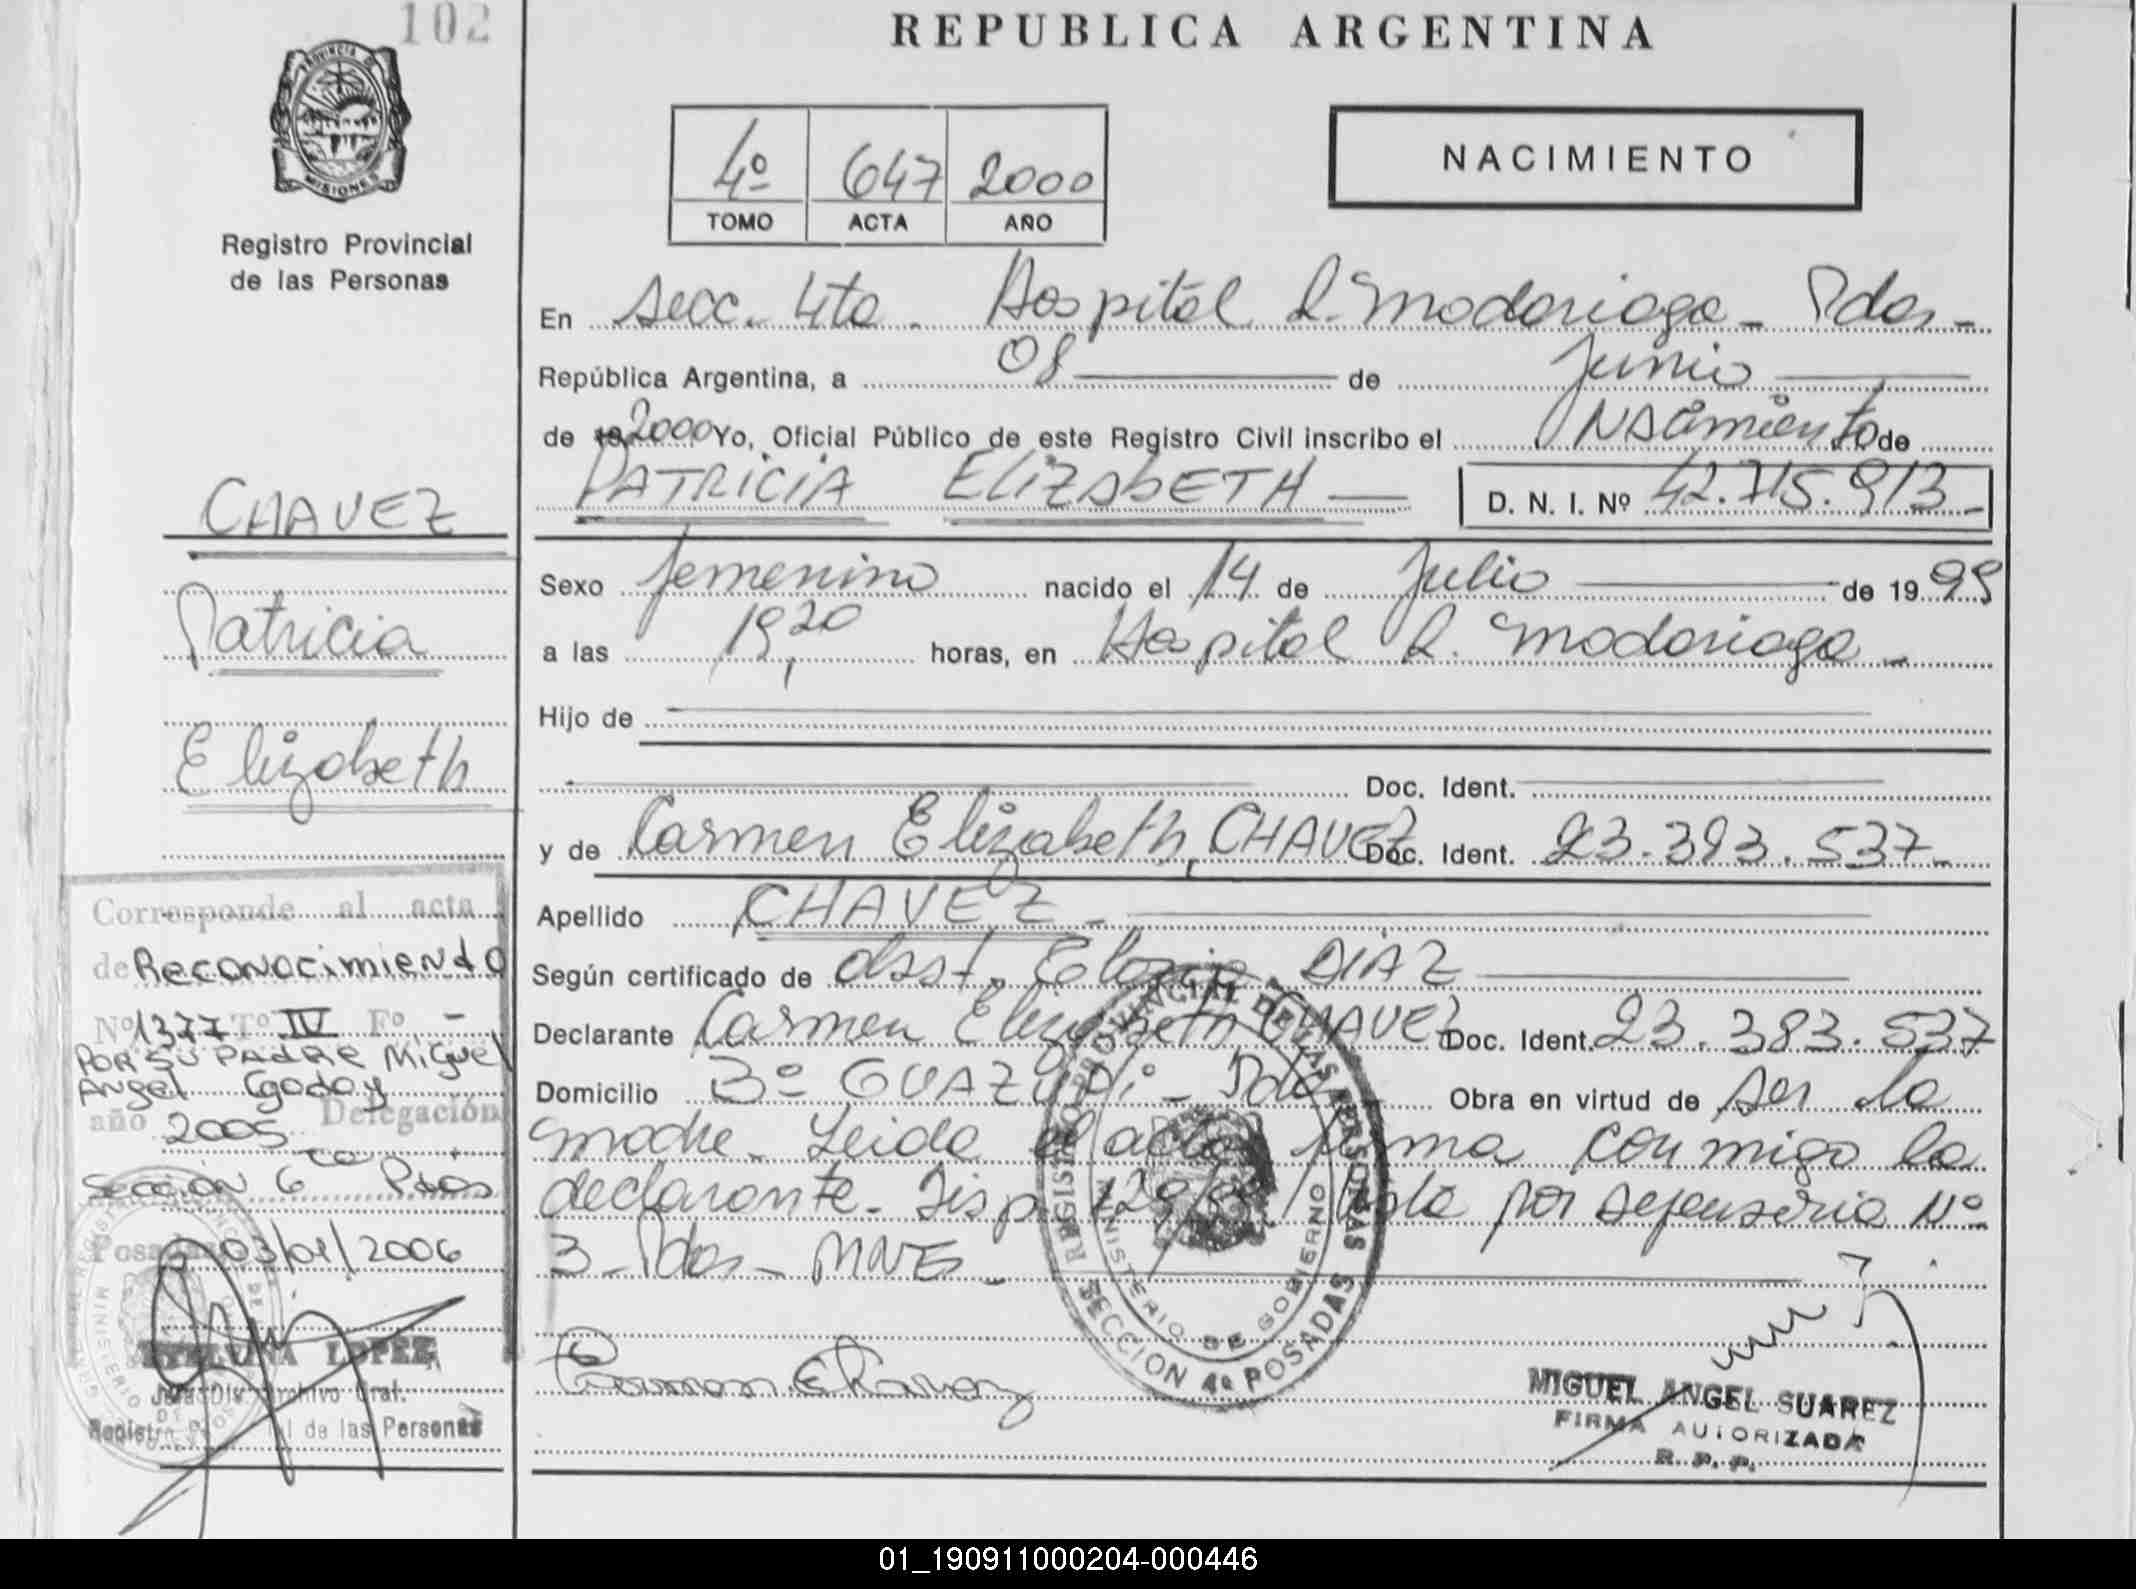 102
REPUBLICA ARGENTINA
PROVINCIA DE
MISIONES
Registro Provincial
de las Personas
4º 647 2000
TOMO ACTA AÑO
NACIMIENTO
En Secc. 4ta. Hospital R. Madariaga - Pdas -
República Argentina, a 08 de Junio
de 19 2000 Yo, Oficial Público de este Registro Civil inscribo el NACimiento de
PATRICIA ELIZABETH D. N. I. Nº 42.715.913-
CHAVEZ
Patricia
Elizabeth
Sexo femenino nacido el 14 de Julio de 1999
a las 19,20 horas, en Hospital R. Madariaga -
Hijo de
Doc. Ident.
y de Carmen Elizabeth, CHAVEZ Doc. Ident. 23.383.537-
Apellido CHAVEZ -
Según certificado de obst. Eloria DIAZ
Declarante Carmen Elizabeth CHAVEZ Doc. Ident. 23.383.537
Domicilio Bº GUAZUPI - Pdas Obra en virtud de ser la
madre. Leida el acta firma conmigo la
declarante. Disp. por defensoria Nº
3 - Pdas - MNES -
Carmen E Chavez
REGISTRO PROVINCIAL DE LAS PERSONAS
MINISTERIO DE GOBIERNO
SECCION 4ª POSADAS
MIGUEL ANGEL SUAREZ
FIRMA AUTORIZADA
R. P. P.
Corresponde al acta
de Reconocimiento
Nº 1377 Tº IV Fº -
POR SU PADRE Miguel
Angel Godoy
año 2005 Delegación
Sección 6ta Pdas
Posadas 03/01/2006
LOPEZ
Jefa Div. Archivo Gral.
Registro de las Personas
01_190911000204-000446